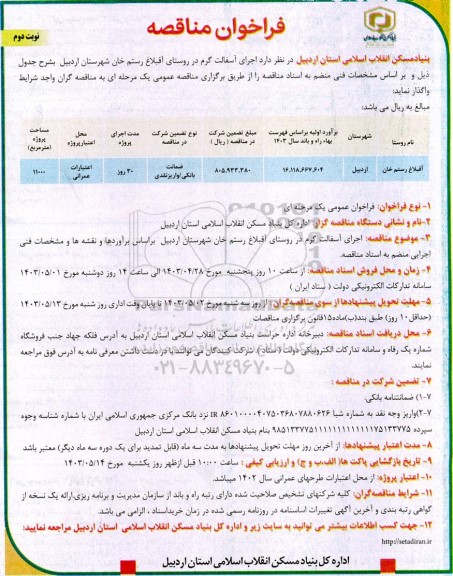 فراخوان مناقصه
نوبت دوم
بنیادمسکن انقلاب اسلامی استان اردبیل در نظر دارد اجرای آسفالت گرم در روستای آقبلاغ رستم خان شهرستان اردبیل بشرح جدول
ذیل و بر اساس مشخصات فنی منضم به اسناد مناقصه را از طریق برگزاری مناقصه عمومی یک مرحله ای به مناقصه گران واجد شرایط
واگذار نماید:
مبالغ به ریال می باشد:
نام روستا	شهرستان	برآورد اولیه براساس فهرست بهاء راه و باند سال ۱۴۰۳	مبلغ تضمین شرکت در مناقصه ( ریال )	نوع تضمین شرکت در مناقصه	مدت اجرای پروژه	محل اعتبارپروژه	مساحت پروژه (مترمربع)
آقبلاغ رستم خان	اردبیل	۱۶.۱۱۸.۶۶۷.۶۰۴	۸۰۵.۹۳۳.۳۸۰	ضمانت بانکی/واریزنقدی	۳۰ روز	اعتبارات عمرانی	۱۱۰۰۰
۱- نوع فراخوان: فراخوان عمومی یک مرحله ای
۲-نام و نشانی دستگاه مناقصه گزار: اداره کل بنیاد مسکن انقلاب اسلامی استان اردبیل
۳- موضوع مناقصه: اجرای آسفالت گرم در روستای آقبلاغ رستم خان شهرستان اردبیل براساس برآوردها و نقشه ها و مشخصات فنی
اجرایی منضم به اسناد مناقصه.
۴- زمان و محل فروش اسناد مناقصه: از ساعت ۱۰ روز پنجشنبه مورخ ۱۴۰۳/۰۴/۲۸ الی ساعت ۱۴ روز دوشنبه مورخ ۱۴۰۳/۰۵/۰۱
سامانه تدارکات الکترونیکی دولت ( ستاد ایران )
۵- مهلت تحویل پیشنهادها از سوی مناقصه‌گران : از روز سه شنبه مورخ ۱۴۰۳/۰۵/۰۲ تا پایان وقت اداری روز شنبه مورخ ۱۴۰۳/۰۵/۱۳
(حداقل ۱۰ روز) طبق بند(ب)ماده۱۵قانون برگزاری مناقصات
۶- محل دریافت اسناد مناقصه: دبیرخانه اداره حراست بنیاد مسکن انقلاب اسلامی استان اردبیل به آدرس فلکه جهاد جنب فروشگاه
شماره یک رفاه و سامانه تدارکات الکترونیکی دولت ( ستاد ) شرکت کنندگان می توانند با در دست داشتن معرفی نامه به آدرس فوق مراجعه
نمایند.
۰۲۱-۸۸۳۴۹۶۷۰-۵
۷- تضمین شرکت در مناقصه :
۷-۱) ضمانتنامه بانکی.
۷-۲)واریز وجه نقد به شماره شبا IR ۸۶۰۱۰۰۰۰۴۰۷۵۰۳۶۸۰۷۸۸۰۶۲۶ نزد بانک مرکزی جمهوری اسلامی ایران با شماره شناسه وجوه
بنام بنیاد مسکن انقلاب اسلامی استان اردبیل
۸- مدت اعتبار پیشنهادها: از آخرین روز مهلت تحویل پیشنهادها به مدت سه ماه (قابل تمدید برای یک دوره سه ماه دیگر) معتبر باشد
۹- تاریخ بازگشایی پاکت ها( الف،ب و ج) و ارزیابی کیفی : ساعت ۱۰:۰۰ قبل ازظهر روز یکشنبه مورخ ۱۴۰۳/۰۵/۱۴
۱۰- اعتبار پروژه: از محل اعتبارات طرحهای عمرانی سال ۱۴۰۲ میباشد.
۱۱- شرایط مناقصه‌گران: کلیه شرکتهای تشخیص صلاحیت شده دارای رتبه راه و باند از سازمان مدیریت و برنامه ریزی،ارائه یک نسخه از
گواهی رتبه بندی و آخرین آگهی تغییرات اساسنامه در روزنامه رسمی شده در زمان خریداسناد ، الزامی می باشد.
۱۲- جهت کسب اطلاعات بیشتر می توانید به سایت زیر و اداره کل بنیاد مسکن انقلاب اسلامی استان اردبیل مراجعه نمایید:
http://setadiran.ir
اداره کل بنیاد مسکن انقلاب اسلامی استان اردبیل